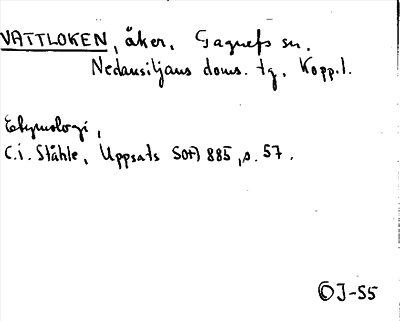 VATTLOKEN, åker. Gagnefs sn.
Nedansiljans doms. tg. Kopp. l.
Etymologi,
C.i. Ståhle, Uppsats SOFI 885, s. 57.
OJ-55